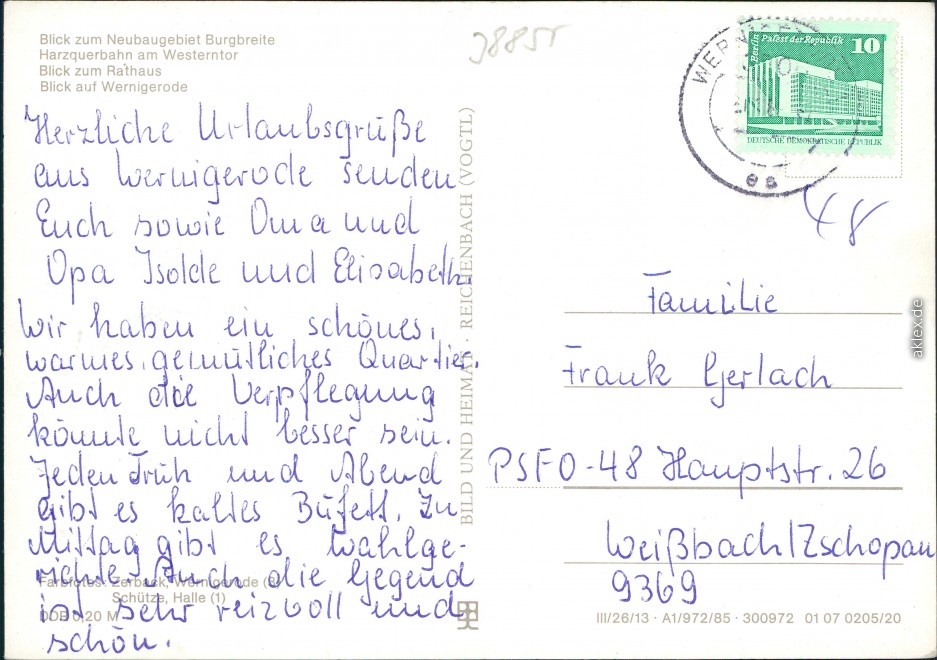 Blick zum Neubaugebiet Burgbreite
Harzquerbahn am Westerntor
Blick zum Rathaus
Blick auf Wernigerode
Herzliche Urlaubsgrüße
aus Wernigerode senden
Euch sowie Oma und
Opa Isolde und Elisabeth.
Wir haben ein schönes,
warmes, gemütliches Quartier.
Auch die Verpflegung
könnte nicht besser sein.
Jeden Früh und Abend
gibt es kaltes Büfett. Zu
Mittag gibt es Wahlge-
richte. Auch die Gegend
ist sehr reizvoll und
schön.
Farbfotos: Zerback, Wernigerode (3)
Schütze, Halle (1)
DDR 0,20 M
BILD UND HEIMAT · REICHENBACH (VOGTL)
38855
Berlin Palast der Republik 10
DEUTSCHE DEMOKRATISCHE REPUBLIK
48
Familie
Frank Gerlach
PSFO-48 Hauptstr. 26
Weißbach/Zschopau
9369
III/26/13 · A1/972/85 · 300972 01 07 0205/20
aklex.de